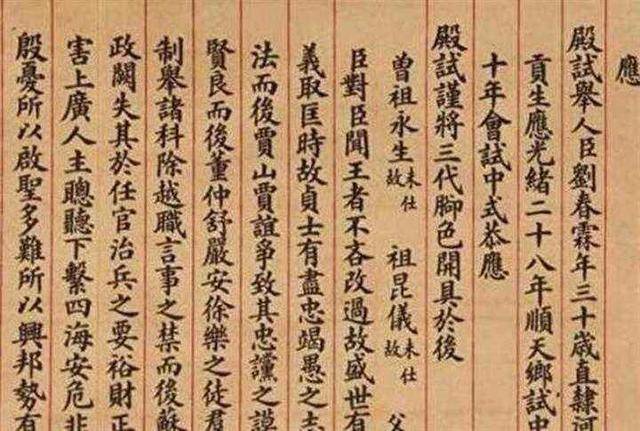 應
殿試舉人臣劉春霖年三十歲直隸河
貢生應光緒二十八年順天鄉試中
十年會試中式恭應
殿試謹將三代腳色開具於後
曾祖永生未仕故 祖昆儀未仕故 父
臣對臣聞王者不吝改過故盛世有
義取匡時故貞士有盡忠竭愚之志
法而後賈山賈誼爭致其忠讜之謨
賢良而後董仲舒嚴安徐樂之徒羣
制舉諸科除越職言事之禁而後蘇
政闕失其於任官治兵之要裕財正
害上廣人主聰聽下繫四海安危非
殷憂所以啟聖多難所以興邦勢有